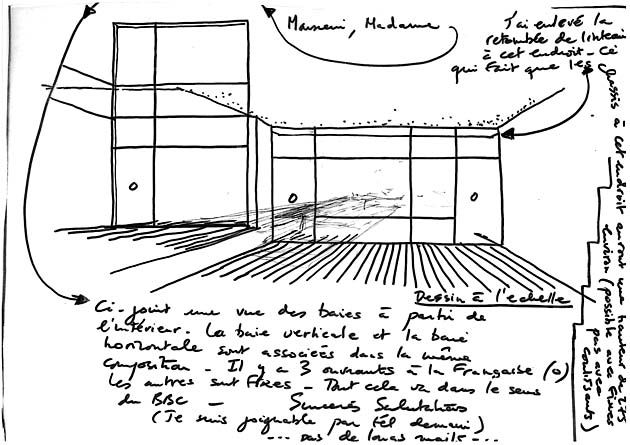 Monsieur, Madame
J'ai enlevé la
retombée de linteau
à cet endroit - Ce
qui fait que les
chassis à cet endroit auront une hauteur de 275
environ (possible avec fixes
pas avec
coulissants)
Dessin à l'echelle
Ci-joint une vue des baies à partir de
l'intérieur. La baie verticale et la baie
horizontale sont associés dans la même
composition - Il y a 3 ouvrants à la Française (o)
les autres sont fixes - Tout cela va dans le sens
du BBC - Sincères Salutations
(Je suis joignable par tél demain)
--- pas de longs mails ---